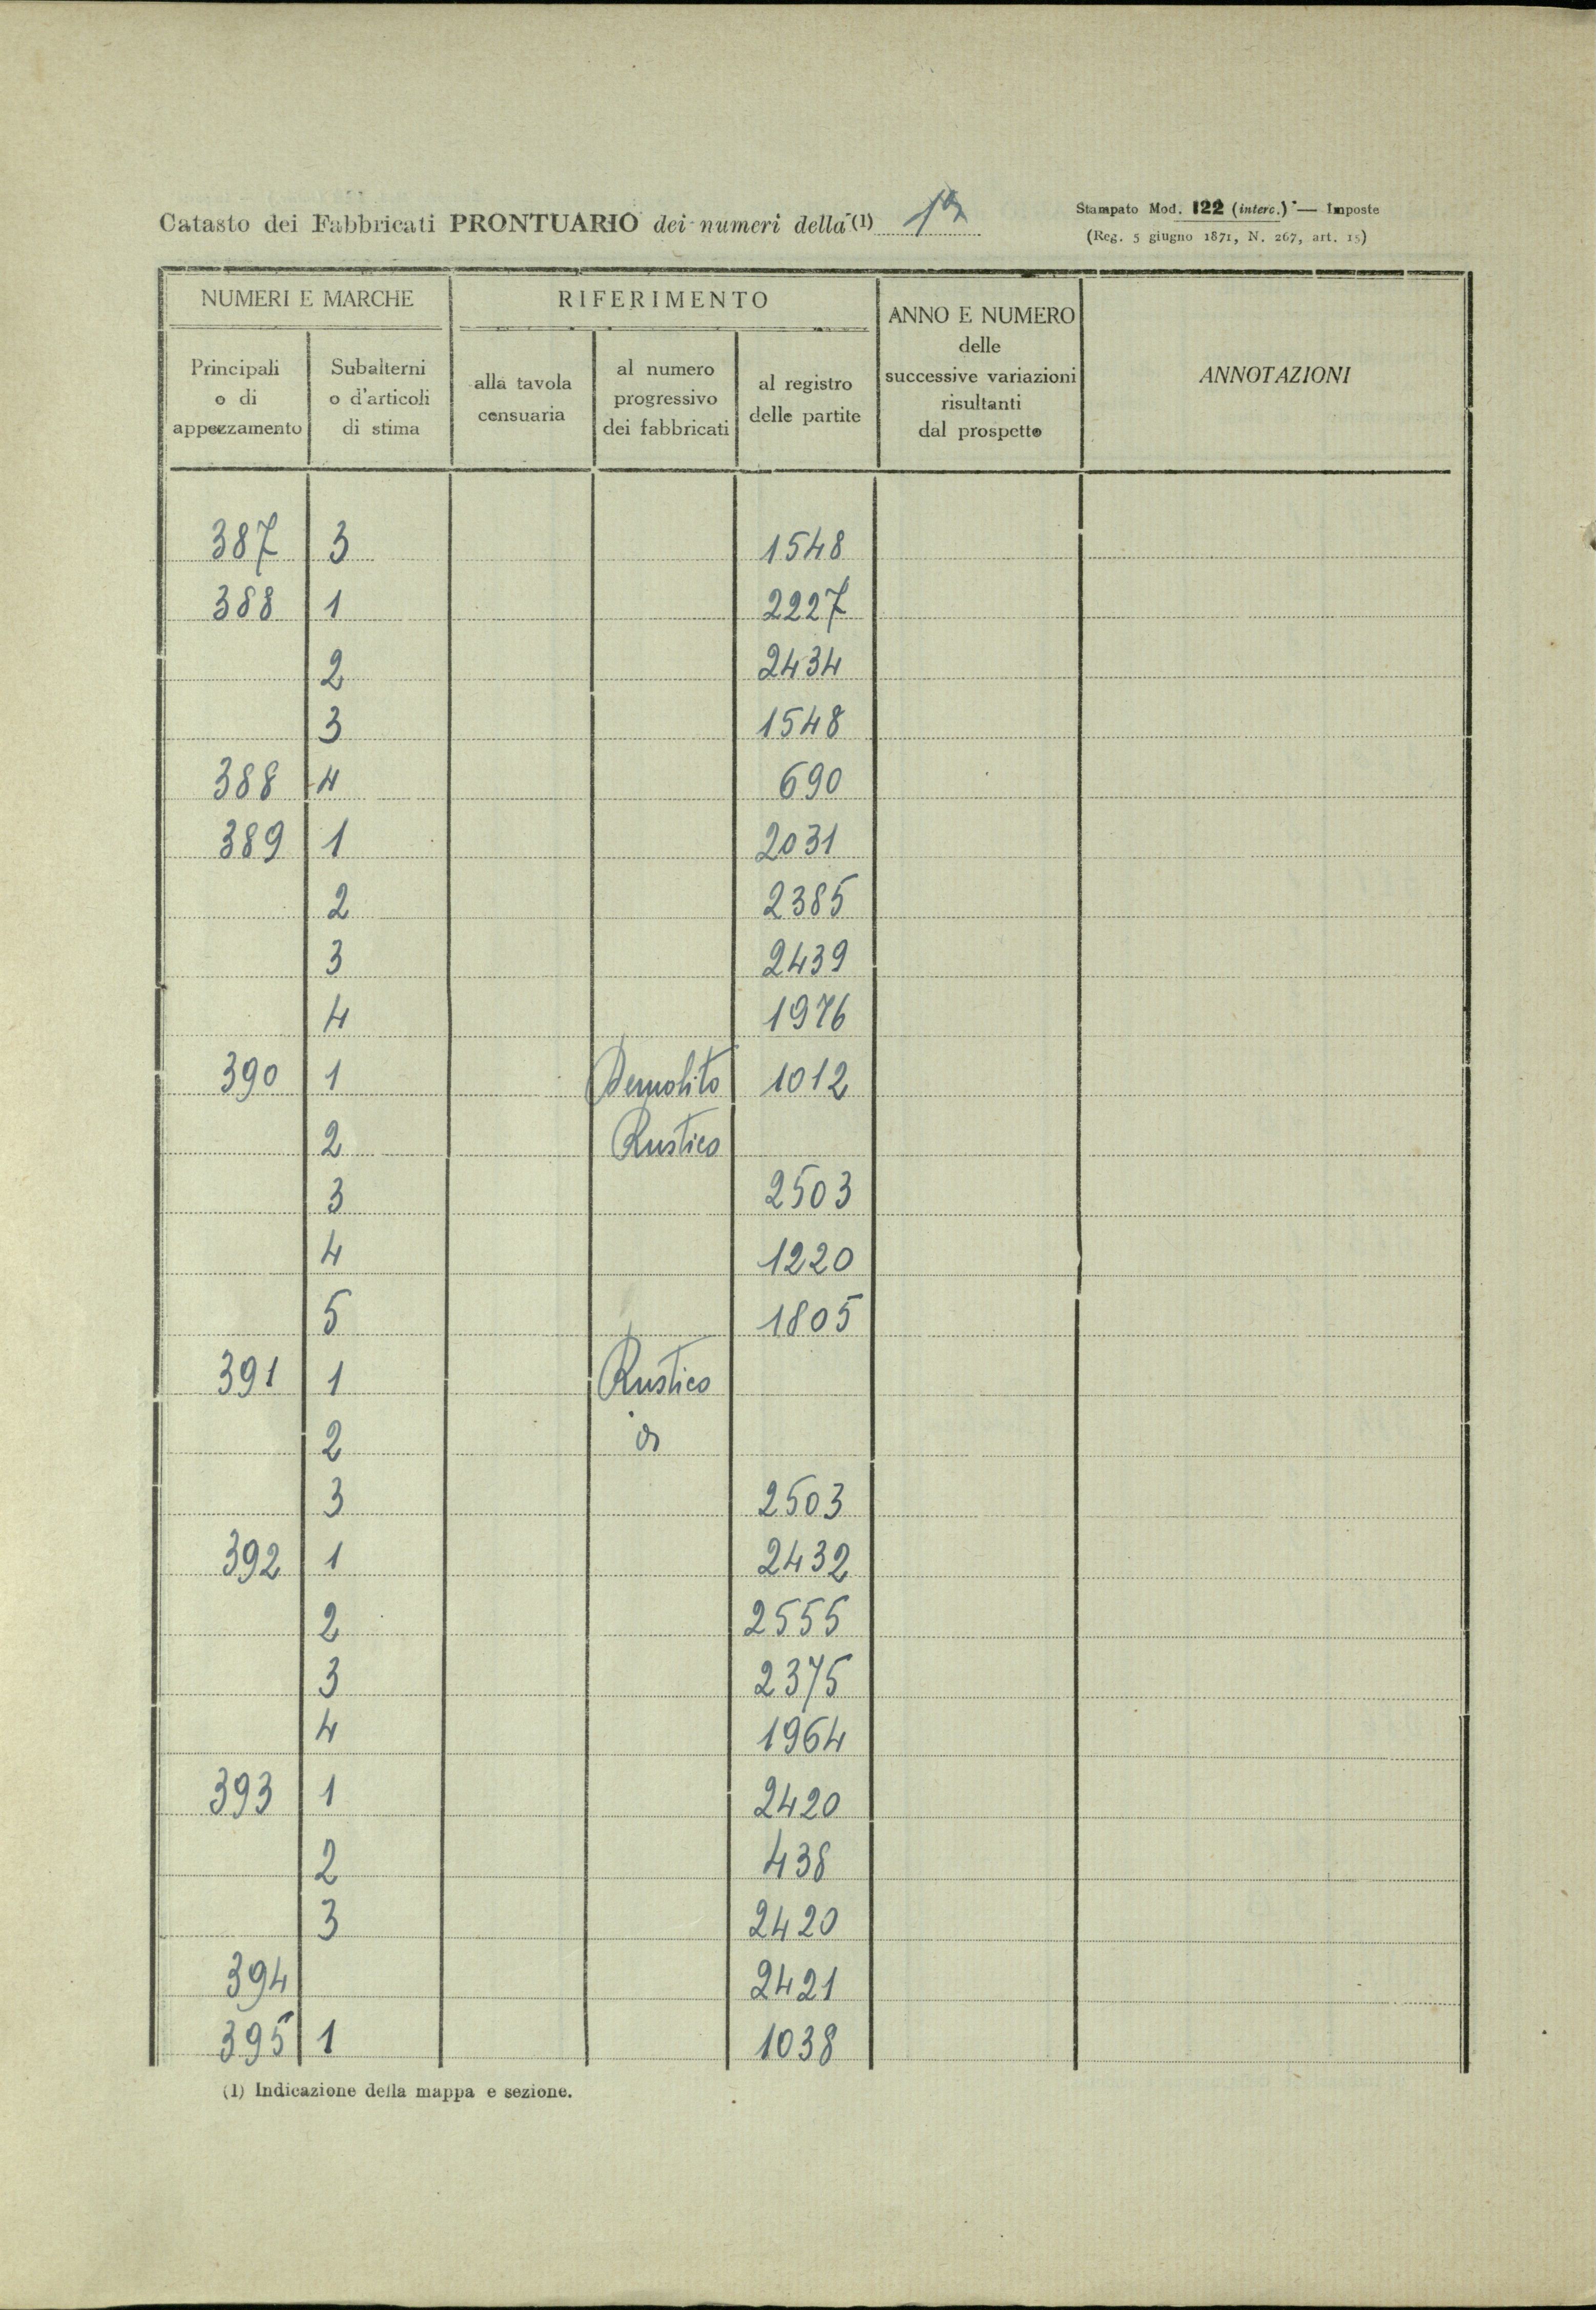 Catasto dei Fabbricati PRONTUARIO dei numeri della (1) 1a
Stampato Mod. 122 (interc.) — Imposte
(Reg. 5 giugno 1871, N. 267, art. 15)
NUMERI E MARCHE RIFERIMENTO ANNO E NUMERO delle successive variazioni risultanti dal prospetto ANNOTAZIONI
Principali o di appezzamento Subalterni o d'articoli di stima alla tavola censuaria al numero progressivo dei fabbricati al registro delle partite
387 3 1548
388 1 2227
2 2434
3 1548
388 4 690
389 1 2031
2 2385
3 2439
4 1976
390 1 Demolito 1012
2 Rustico
3 2503
4 1220
5 1805
391 1 Rustico
2
3 2503
392 1 2432
2 2555
3 2375
4 1964
393 1 2420
2 438
3 2420
394 2421
395 1 1038
(1) Indicazione della mappa e sezione.